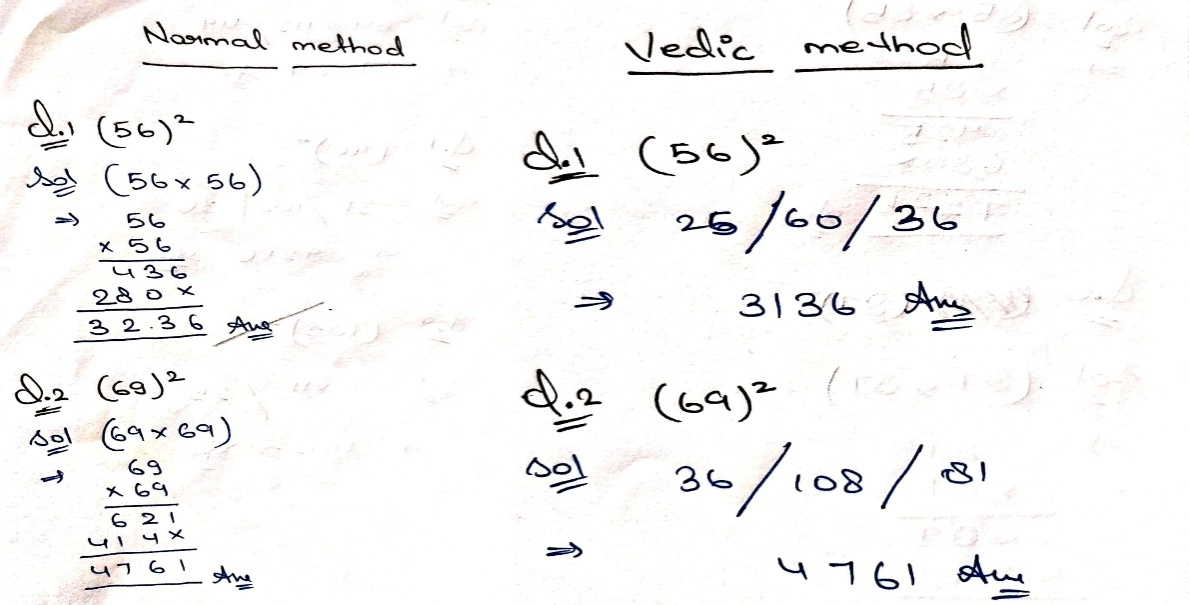 Normal method
Q.1 (56)²
Sol (56 x 56)
⇒ 56
x 56
436
280 x
32.36 Ans
Q.2 (69)²
Sol (69 x 69)
⇒ 69
x 69
621
414 x
4761 Ans
Vedic method
Q.1 (56)²
Sol 25/60/36
⇒ 3136 Ans
Q.2 (69)²
Sol 36/108/81
⇒ 4761 Ans